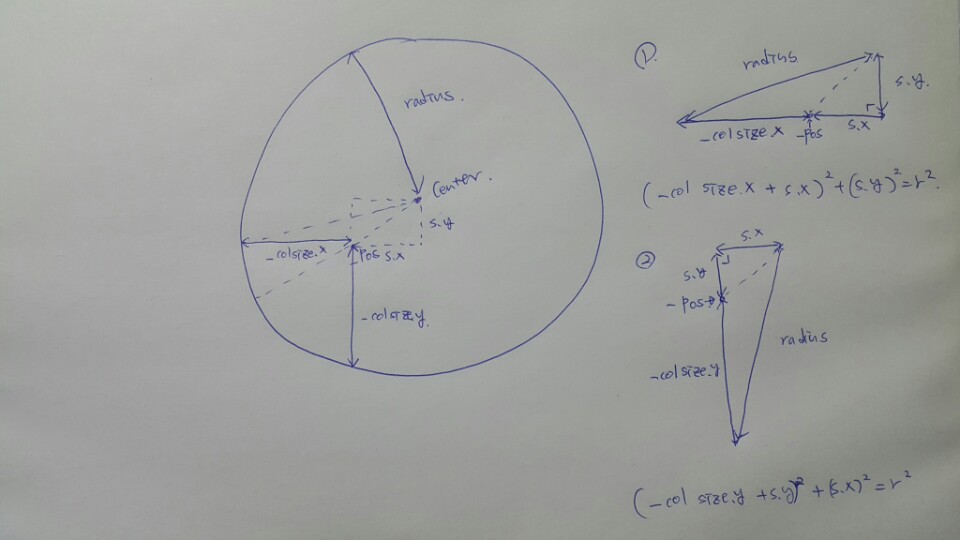 radius.
Center.
s.y
-colsize.x
-pos
s.x
-colsize.y
①.
radius
s.y.
-colsize.x
-pos
s.x
(-col size.x + s.x)²+(s.y)²=r².
②
s.x
s.y
-pos
radius
-colsize.y
(-col size.y +s.y)²+(s.x)²=r²